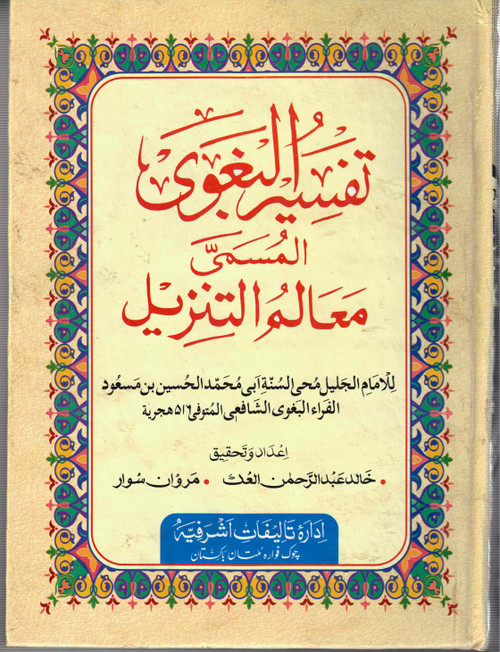 تفسير البغوى
المُسَمّىٰ
مَعَالمُ التنزيل
لِلامَامِ الجَليل مُحى السُنّة أبى مُحَمّد الحُسين بن مَسعُود
الفراء البغوى الشافعى المتوفى ٥١٦ هجرية
إعْداد وتحقيق
• خَالد عَبد الرَّحمٰن العك • مَروان سوار
ادارۂ تالیفات اشرفیہ
چوک فوارہ ملتان پاکستان